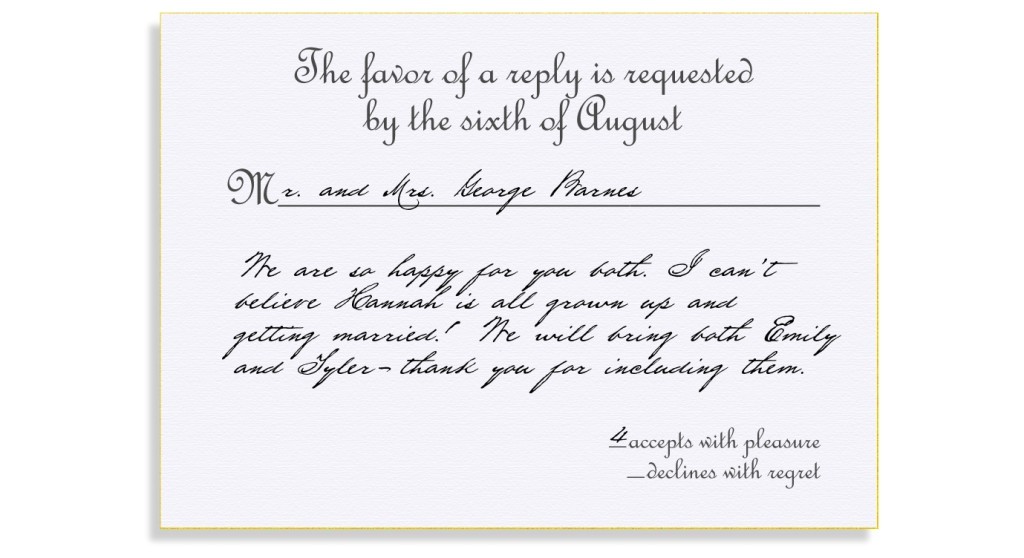 The favor of a reply is requested
by the sixth of August
Mr. and Mrs. George Barnes
We are so happy for you both. I can't
believe Hannah is all grown up and
getting married! We will bring both Emily
and Tyler- thank you for including them.
4 accepts with pleasure
_declines with regret